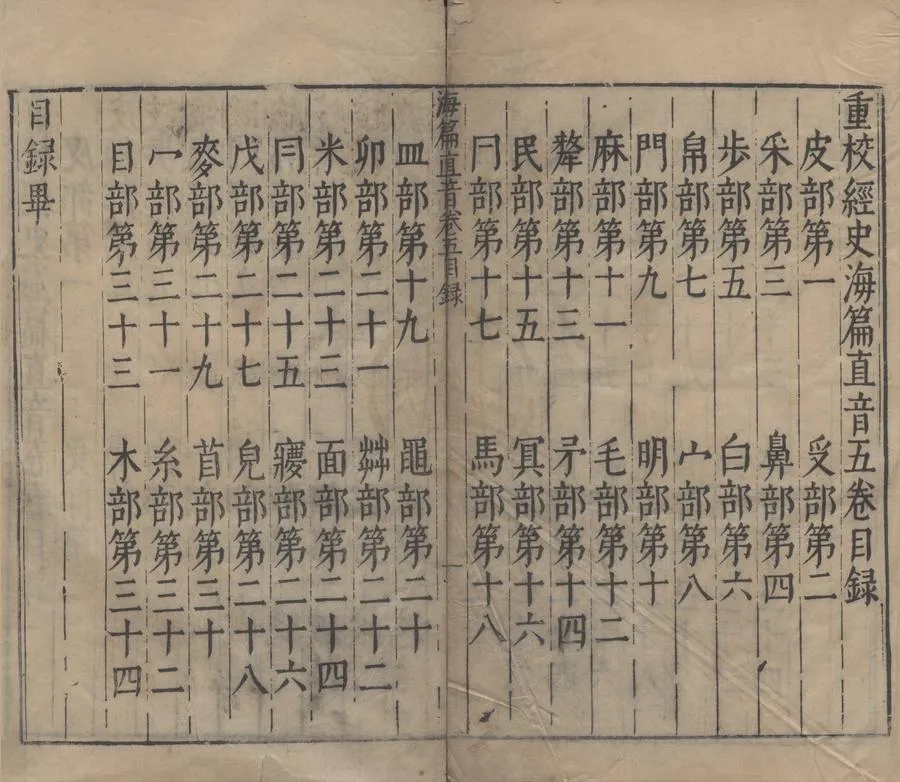 重校經史海篇直音五卷目録
皮部第一　𠬪部第二
釆部第三　鼻部第四
歩部第五　白部第六
帛部第七　宀部第八
門部第九　明部第十
麻部第十一　毛部第十二
犛部第十三　矛部第十四
民部第十五　冥部第十六
冂部第十七　馬部第十八
海篇直音卷五目録　一
皿部第十九　黽部第二十
卯部第二十一　茻部第二十二
米部第二十三　面部第二十四
冃部第二十五　㝱部第二十六
戊部第二十七　皃部第二十八
麥部第二十九　苜部第三十
冖部第三十一　糸部第三十二
目部第三十三　木部第三十四
目録畢